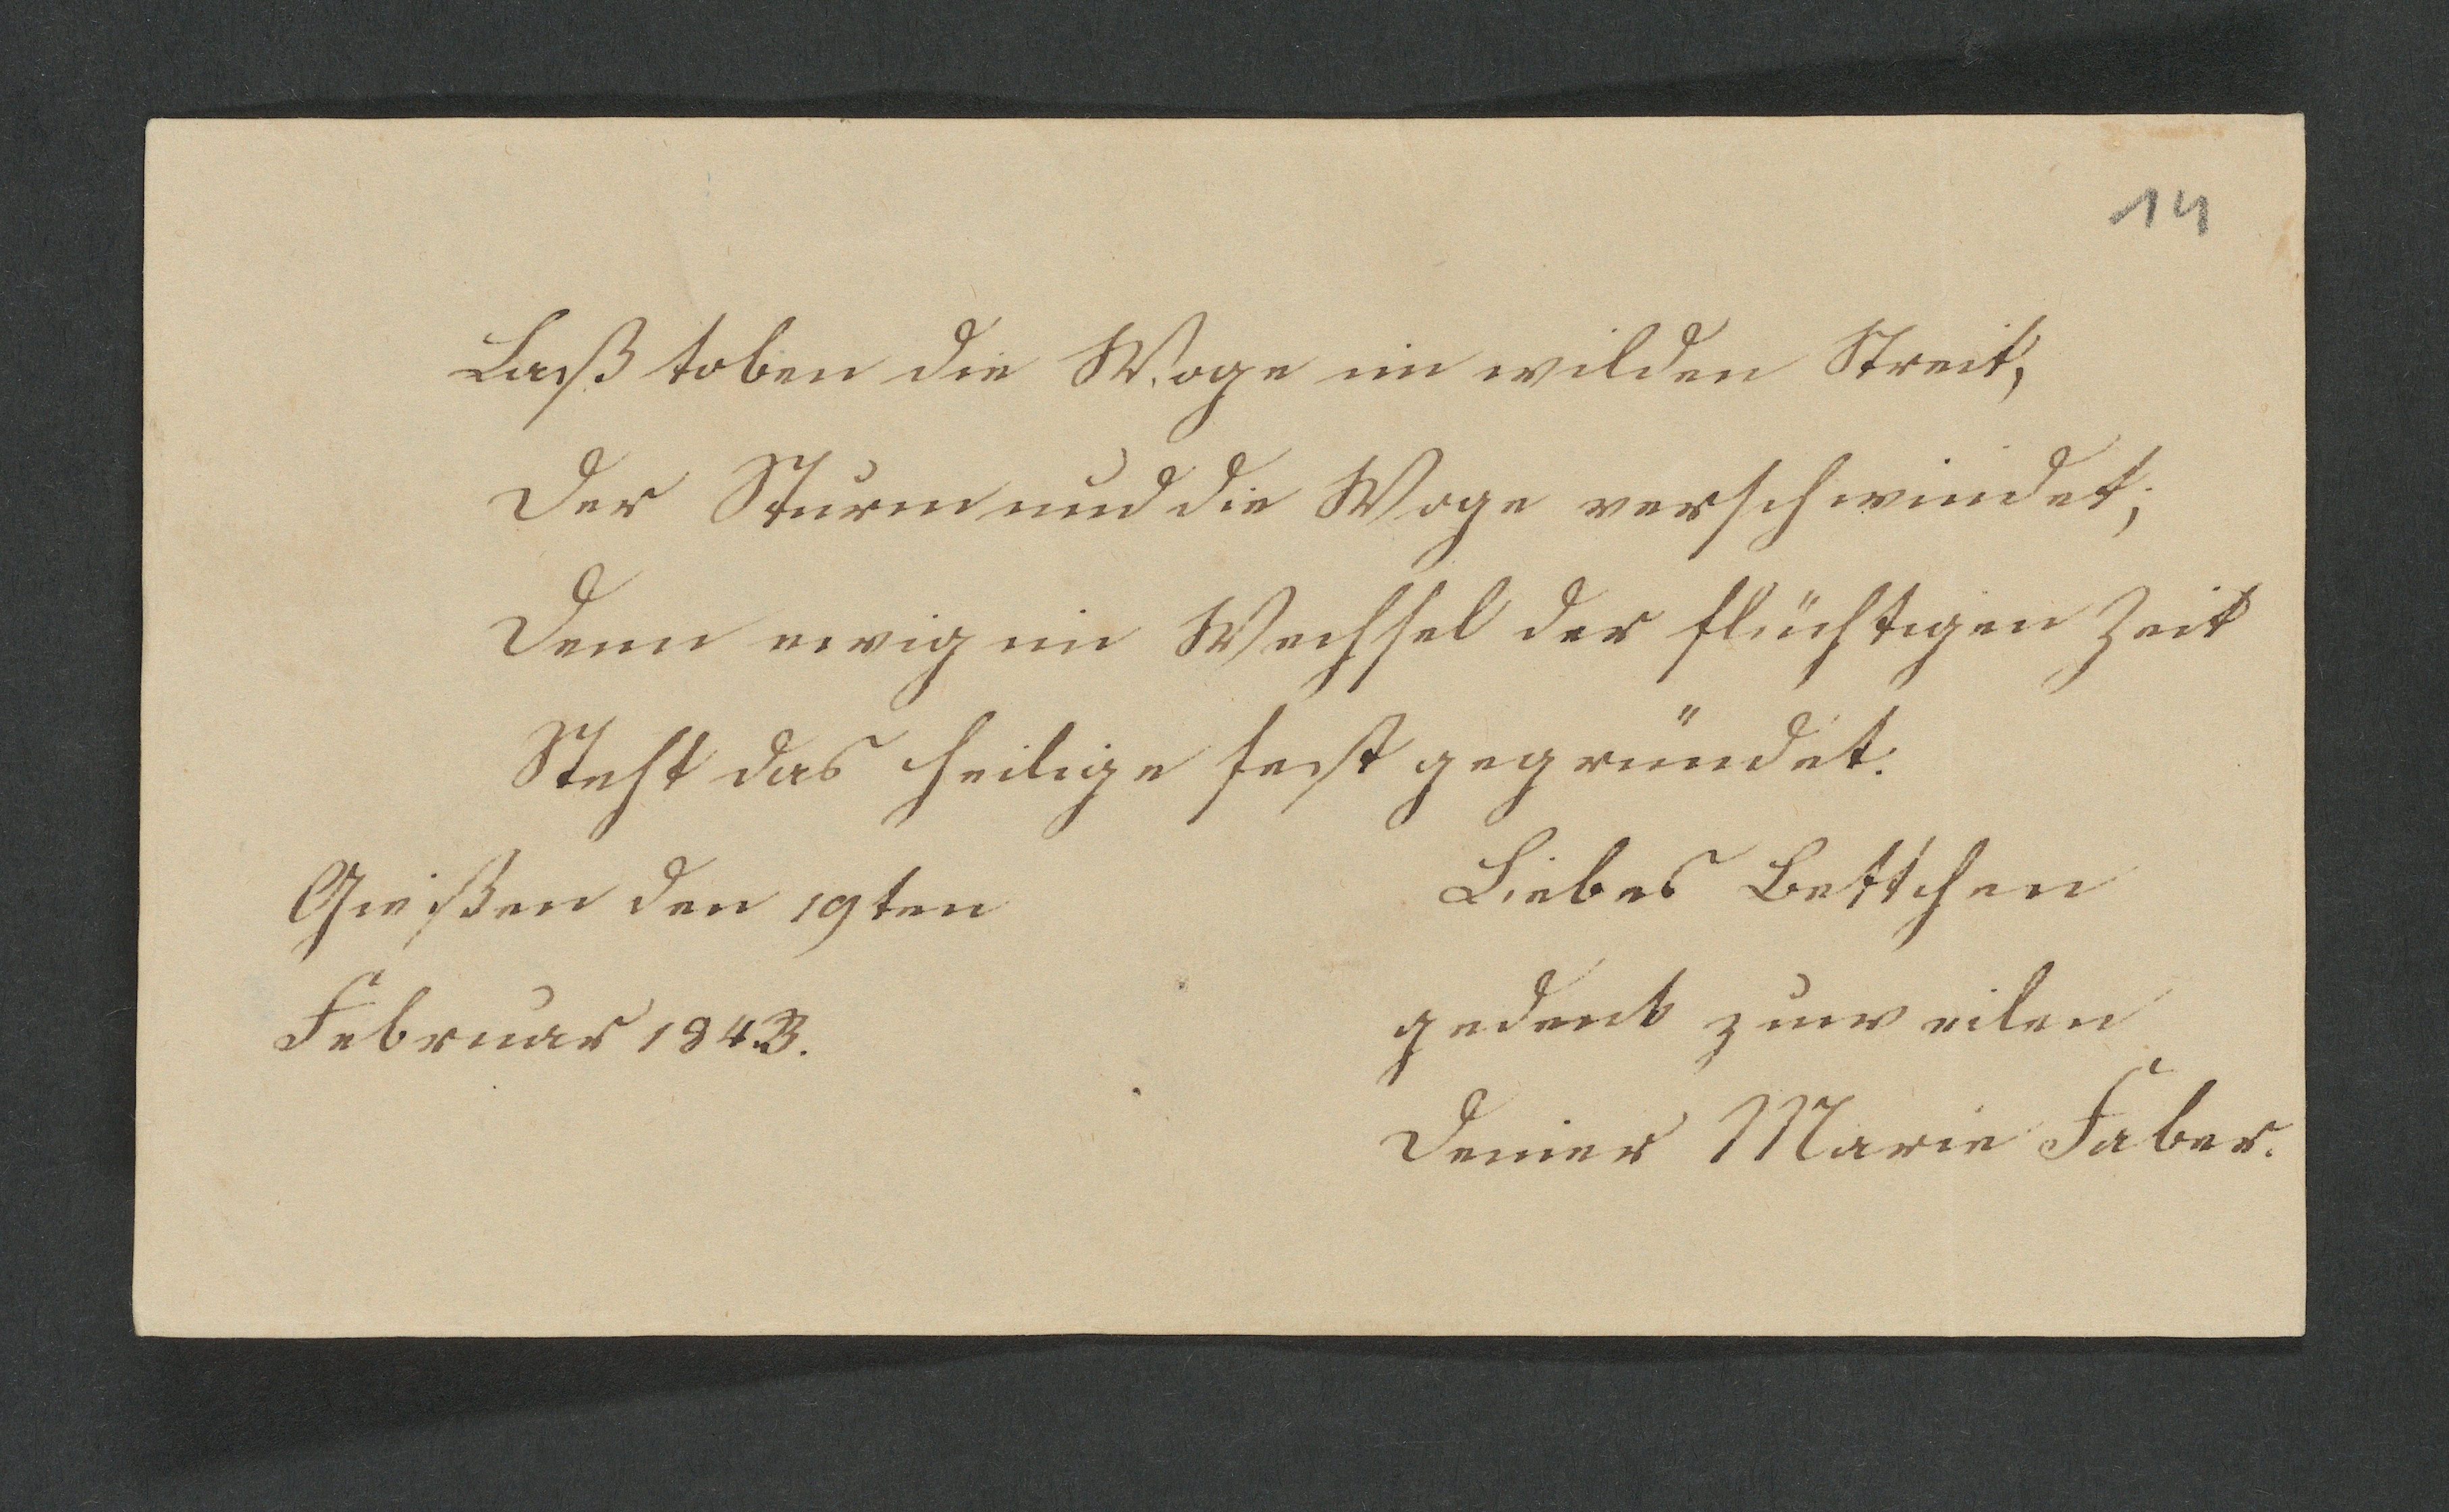 14
Laß toben die Woge im wilden Streit,
Der Sturm und die Woge verschwindet;
Denn ewig im Wechsel der flüchtigen Zeit
Steht das heilige fest gegründet.
Gießen den 19ten
Februar 1843.
Liebes Bettchen
gedenk zuweilen
Deiner Marie Faber.